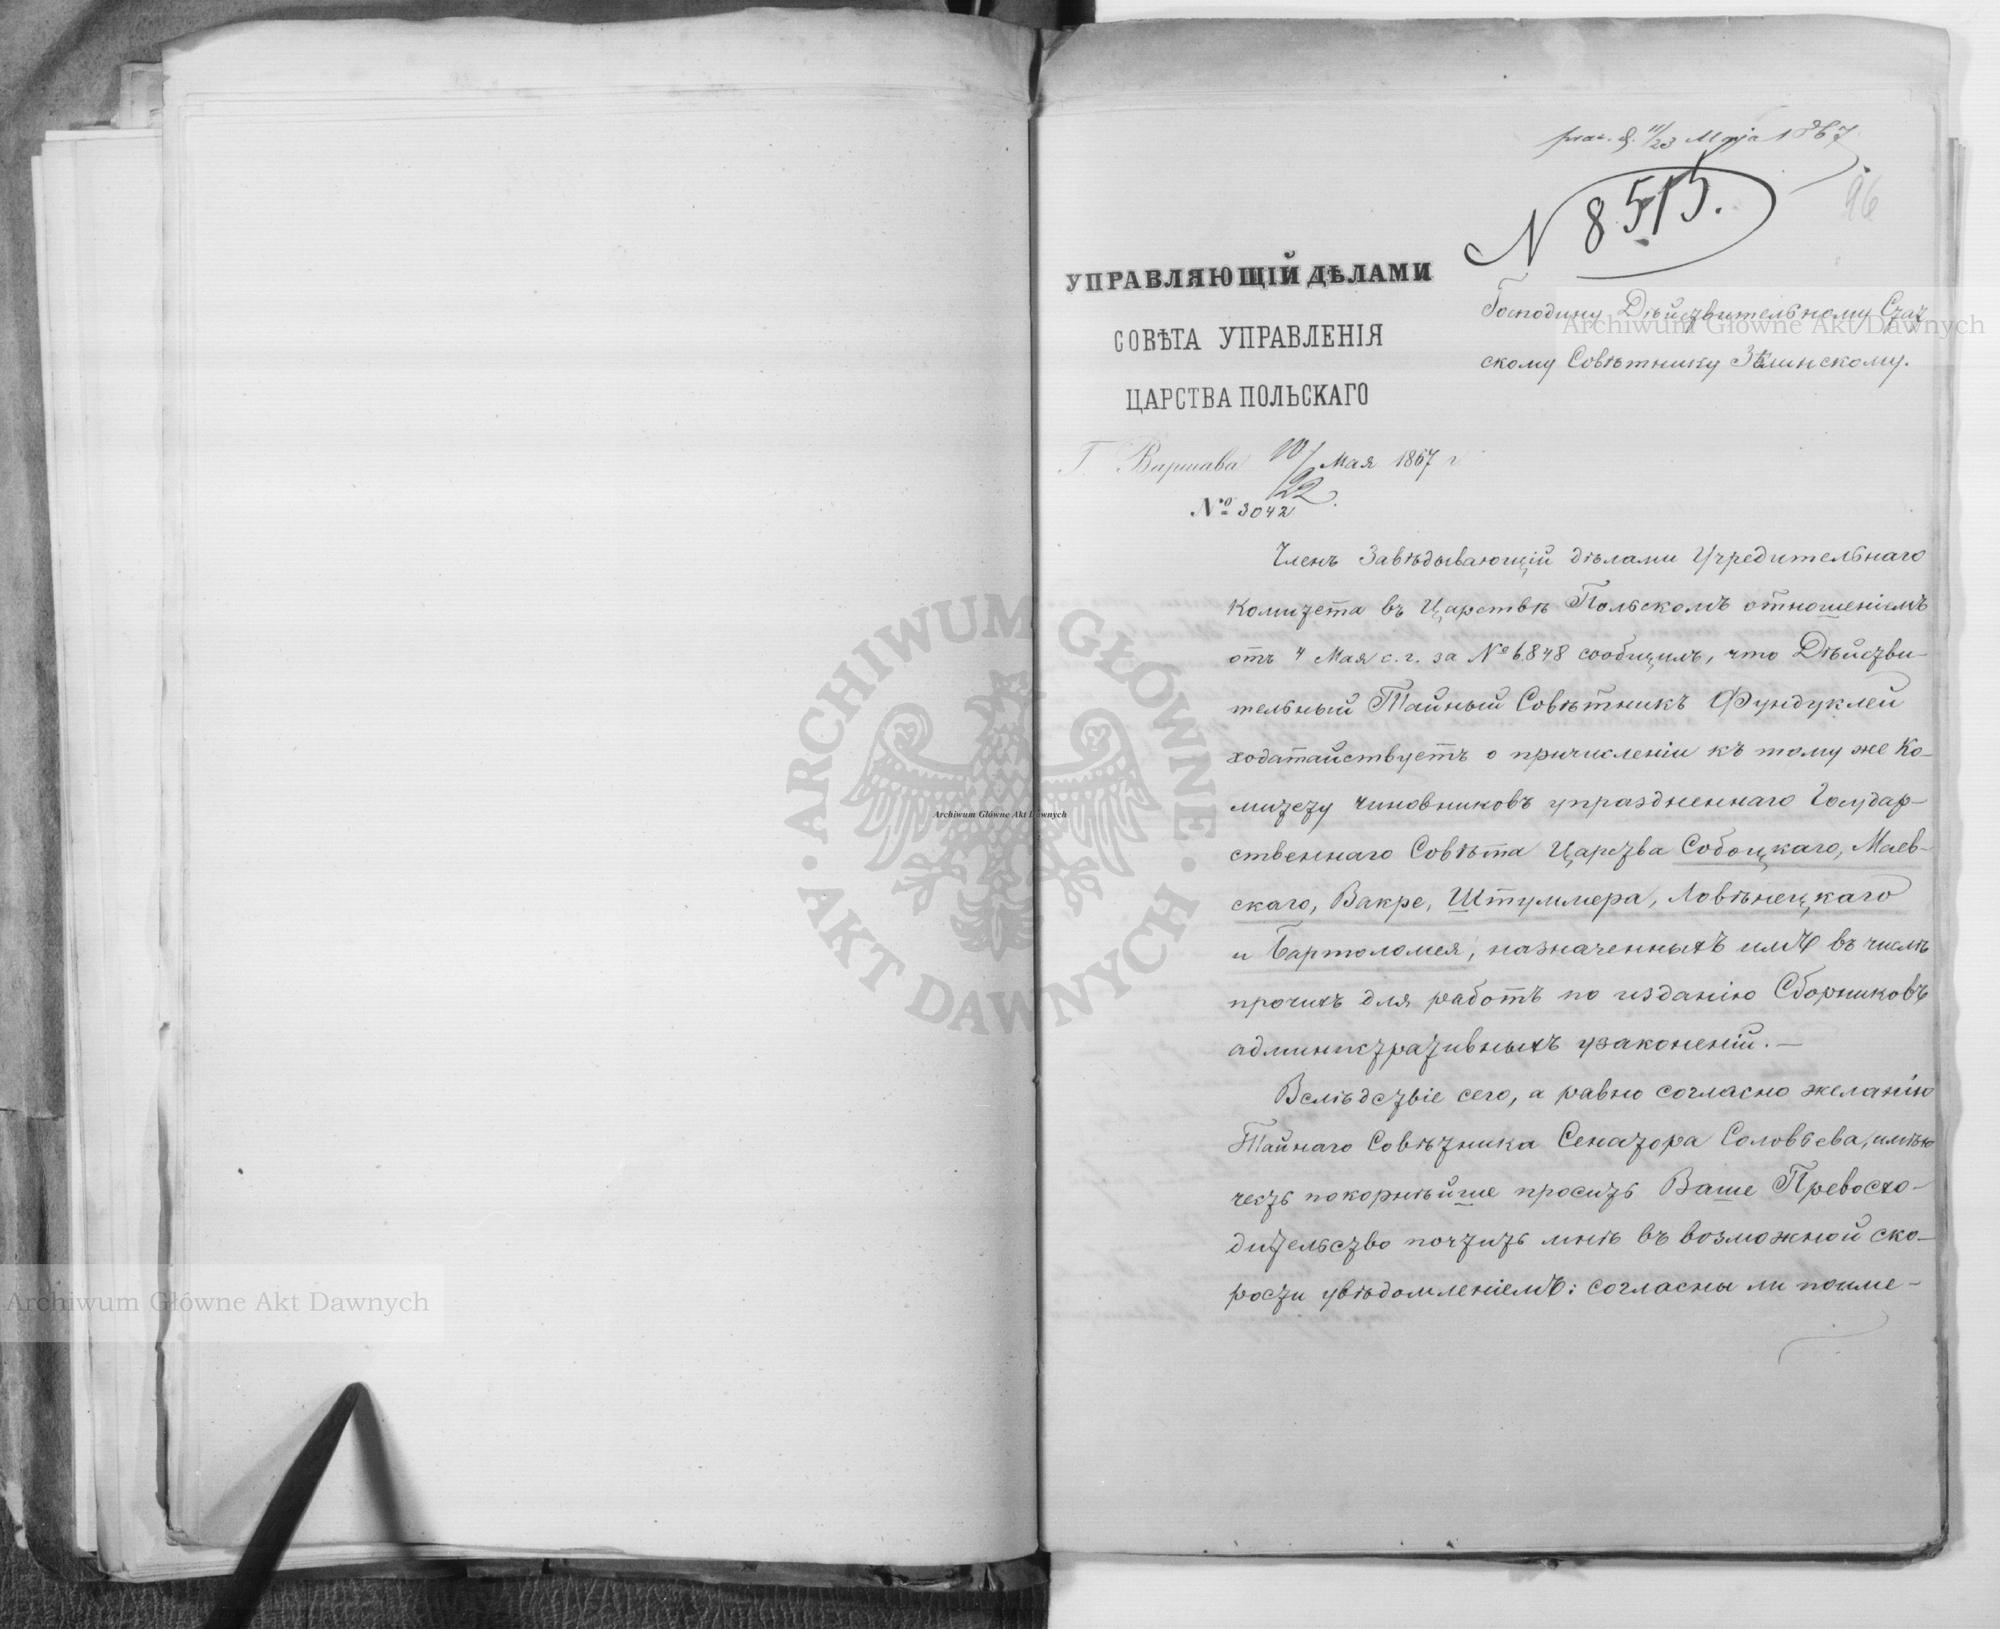 prez. d. 11/23 Maja 1867
N 8515.
96
УПРАВЛЯЮЩІЙ ДѢЛАМИ
СОВѢТА УПРАВЛЕНІЯ
ЦАРСТВА ПОЛЬСКАГО
Г. Варшава 10/22 Мая 1867 г.
№ 3042
Господину Дѣйствительному Стат
скому Совѣтнику Зѣлинскому.
Членъ Завѣдывающій дѣлами Учредительнаго
Комитета въ Царствѣ Польскомъ отношеніемъ
отъ 4 Мая с. г. за № 6848 сообщилъ, что Дѣйстви-
тельный Тайный Совѣтникъ Фундуклей
ходатайствуетъ о причисленіи къ тому же Ко-
митету чиновниковъ упраздненнаго Государ-
ственнаго Совѣта Царства Собоцкаго, Маев-
скаго, Вакре, Штуммера, Ловѣнецкаго
и Бартоломея, назначенныхъ имъ въ числѣ
прочихъ для работъ по изданію Сборниковъ
административныхъ узаконеній.—
Вслѣдствіе сего, а равно согласно желанію
Тайнаго Совѣтника Сенатора Соловьева, имѣю
честь покорнѣйше просить Ваше Превосхо-
дительство почтить мнѣ въ возможной ско-
рости увѣдомленіемъ: согласны ли поиме-
Archiwum Główne Akt Dawnych
Archiwum Główne Akt Dawnych
Archiwum Główne Akt Dawnych
ARCHIWUM GŁÓWNE · AKT DAWNYCH ·